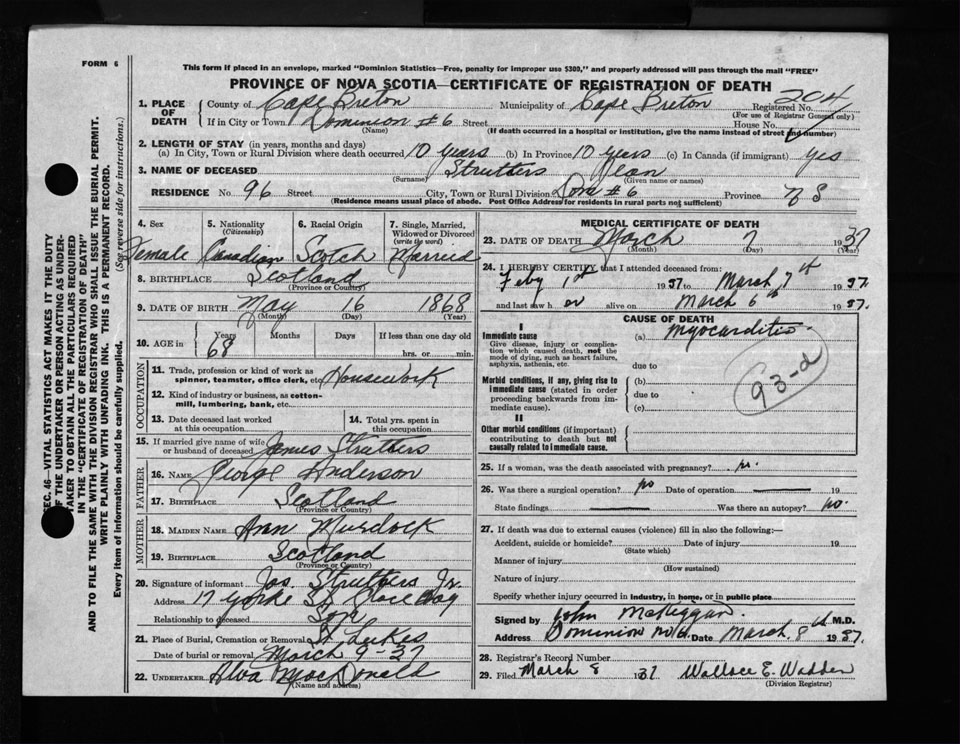 FORM 6
This form if placed in an envelope, marked "Dominion Statistics—Free, penalty for improper use $300," and properly addressed will pass through the mail "FREE"
PROVINCE OF NOVA SCOTIA—CERTIFICATE OF REGISTRATION OF DEATH
1. PLACE OF DEATH
County of Cape Breton Municipality of Cape Breton Registered No. 204
(For use of Registrar General only)
If in City or Town Dominion #6 Street House No.
(Name) (If death occurred in a hospital or institution, give the name instead of street and number)
2. LENGTH OF STAY (in years, months and days)
(a) In City, Town or Rural Division where death occurred 10 years (b) In Province 10 years (c) In Canada (if immigrant) yes
3. NAME OF DECEASED Struthers Jean
(Surname) (Given name or names)
RESIDENCE No. 96 Street City, Town or Rural Division Dom #6 Province N S
(Residence means usual place of abode. Post Office Address for residents in rural parts not sufficient)
4. Sex 5. Nationality (Citizenship) 6. Racial Origin 7. Single, Married, Widowed or Divorced (write the word)
Female Canadian Scotch Married
8. BIRTHPLACE Scotland
(Province or Country)
9. DATE OF BIRTH May 16 1868
(Month) (Day) (Year)
10. AGE in Years Months Days If less than one day old
68 hrs. or min.
OCCUPATION
11. Trade, profession or kind of work as spinner, teamster, office clerk, etc. Housework
12. Kind of industry or business, as cotton-mill, lumbering, bank, etc.
13. Date deceased last worked at this occupation
14. Total yrs. spent in this occupation
15. If married give name of wife or husband of deceased James Struthers
FATHER
16. NAME George Anderson
17. BIRTHPLACE Scotland
(Province or Country)
MOTHER
18. MAIDEN NAME Ann Murdock
19. BIRTHPLACE Scotland
(Province or Country)
20. Signature of informant Jas. Struthers Jr.
Address 17 Yorke St Glace Bay
Relationship to deceased Son
21. Place of Burial, Cremation or Removal St Lukes
Date of burial or removal March 9-37
22. UNDERTAKER Alva MacDonald
(Name and address)
MEDICAL CERTIFICATE OF DEATH
23. DATE OF DEATH March 7 1937
(Month) (Day) (Year)
24. I HEREBY CERTIFY that I attended deceased from:
Feby 1st 1937 to March 7th 1937.
and last saw her alive on March 6th 1937.
CAUSE OF DEATH
I
Immediate cause
Give disease, injury or complication which caused death, not the mode of dying, such as heart failure, asphyxia, asthenia, etc.
(a) Myocarditis
due to
Morbid conditions, if any, giving rise to immediate cause (stated in order proceeding backwards from immediate cause).
(b)
due to
(c)
93-d
II
Other morbid conditions (if important) contributing to death but not causally related to immediate cause.
25. If a woman, was the death associated with pregnancy? no.
26. Was there a surgical operation? no Date of operation 19
State findings Was there an autopsy? no.
27. If death was due to external causes (violence) fill in also the following:—
Accident, suicide or homicide? Date of injury 19
(State which)
Manner of injury
(How sustained)
Nature of injury
Specify whether injury occurred in industry, in home, or in public place
Signed by John McKeggan M.D.
Address Dominion No 6. Date March 8th 1937.
28. Registrar's Record Number
29. Filed March 8 1937 Wallace E. Wadden
(Division Registrar)
SEC. 46—VITAL STATISTICS ACT MAKES IT THE DUTY
OF THE UNDERTAKER OR PERSON ACTING AS UNDER-
TAKER TO OBTAIN ALL THE PARTICULARS REQUIRED
IN THE "CERTIFICATE OF REGISTRATION OF DEATH"
AND TO FILE THE SAME WITH THE DIVISION REGISTRAR WHO SHALL ISSUE THE BURIAL PERMIT.
WRITE PLAINLY WITH UNFADING INK. THIS IS A PERMANENT RECORD.
Every item of information should be carefully supplied. (See reverse side for instructions.)